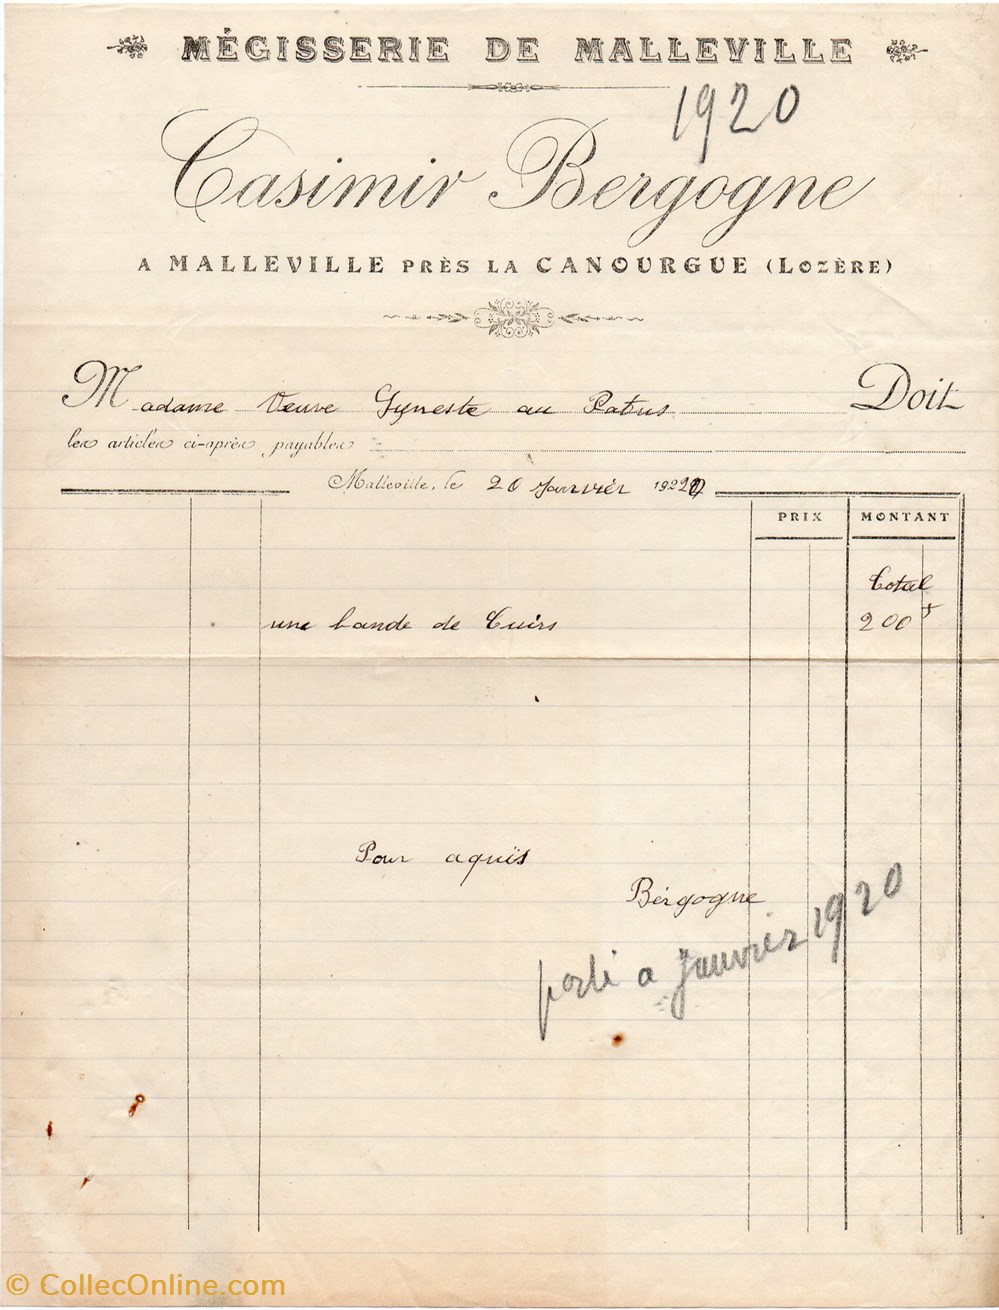 MÉGISSERIE DE MALLEVILLE
1920
Casimir Bergogne
A MALLEVILLE PRÈS LA CANOURGUE (LOZÈRE)
Madame Veuve Gyneste au Patus Doit
les articles ci-après payables
Malleville, le 20 Janvier 192
PRIX MONTANT
Total
une bande de Cuirs 200 f
Pour aquis
Bergogne
porté a Janvier 1920
© CollecOnline.com